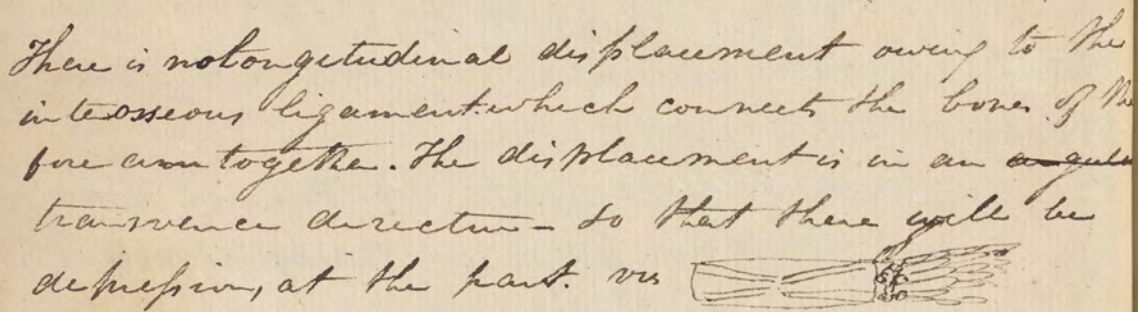 There is no longitudinal displacement owing to the
interosseous ligament which connects the bones of the
fore arm together. The displacement is in an angular
transverce direction – so that there will be
depression, at the part. vis